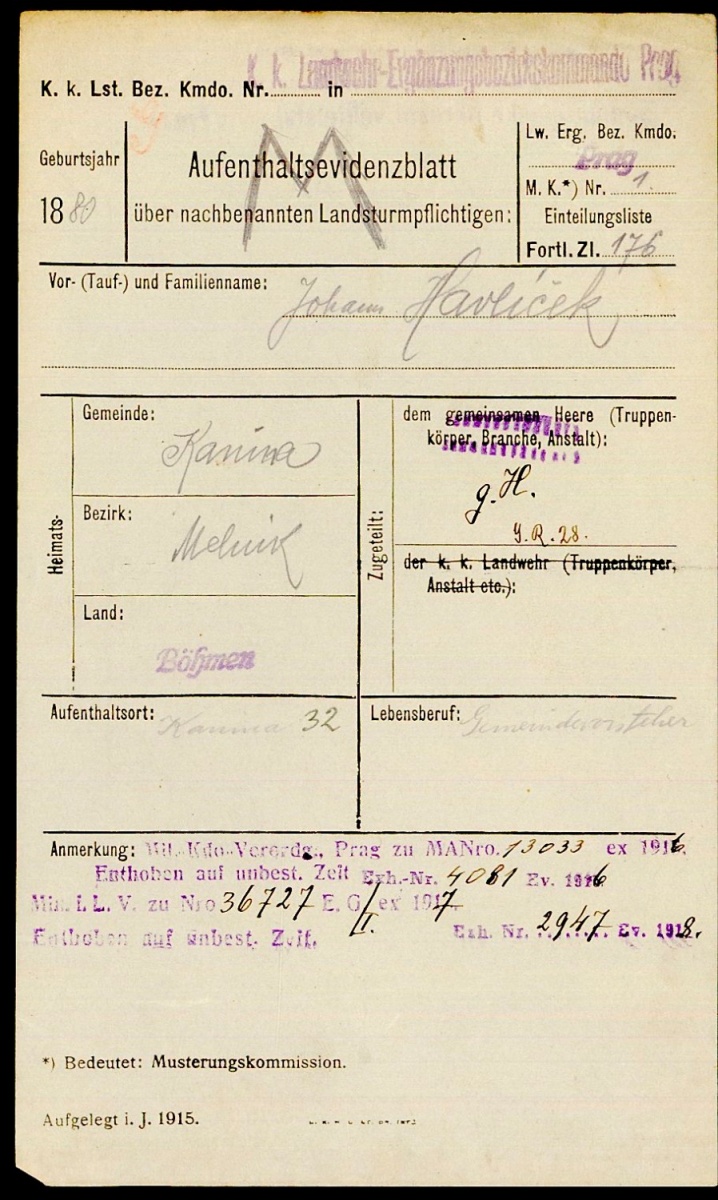 K. k. Landwehr-Ergänzungsbezirkskommando Prag
K. k. Lst. Bez. Kmdo. Nr. in
Geburtsjahr
1880
M
Aufenthaltsevidenzblatt
über nachbenannten Landsturmpflichtigen:
Lw. Erg. Bez. Kmdo.
Prag
M. K.*) Nr. 1.
Einteilungsliste
Fortl. Zl. 176
Vor- (Tauf-) und Familienname: Johann Havlíček
Heimats-
Gemeinde:
Kanina
Bezirk:
Melnik
Land:
Böhmen
Zugeteilt:
dem gemeinsamen Heere (Truppen-
körper, Branche, Anstalt):
g. H.
J. R. 28.
der k. k. Landwehr (Truppenkörper,
Anstalt etc.):
Aufenthaltsort: Kanina 32
Lebensberuf: Gemeindevorsteher
Anmerkung: Mil. Kdo. Verordg., Prag zu MANro. 13033 ex 1916.
Enthoben auf unbest. Zeit Exh.-Nr. 4081 Ev. 1916
Min. f. L. V. zu Nro 36727 E. G/I. ex 1917.
Enthoben auf unbest. Zeit. Exh. Nr. 2947 Ev. 1918.
*) Bedeutet: Musterungskommission.
Aufgelegt i. J. 1915.